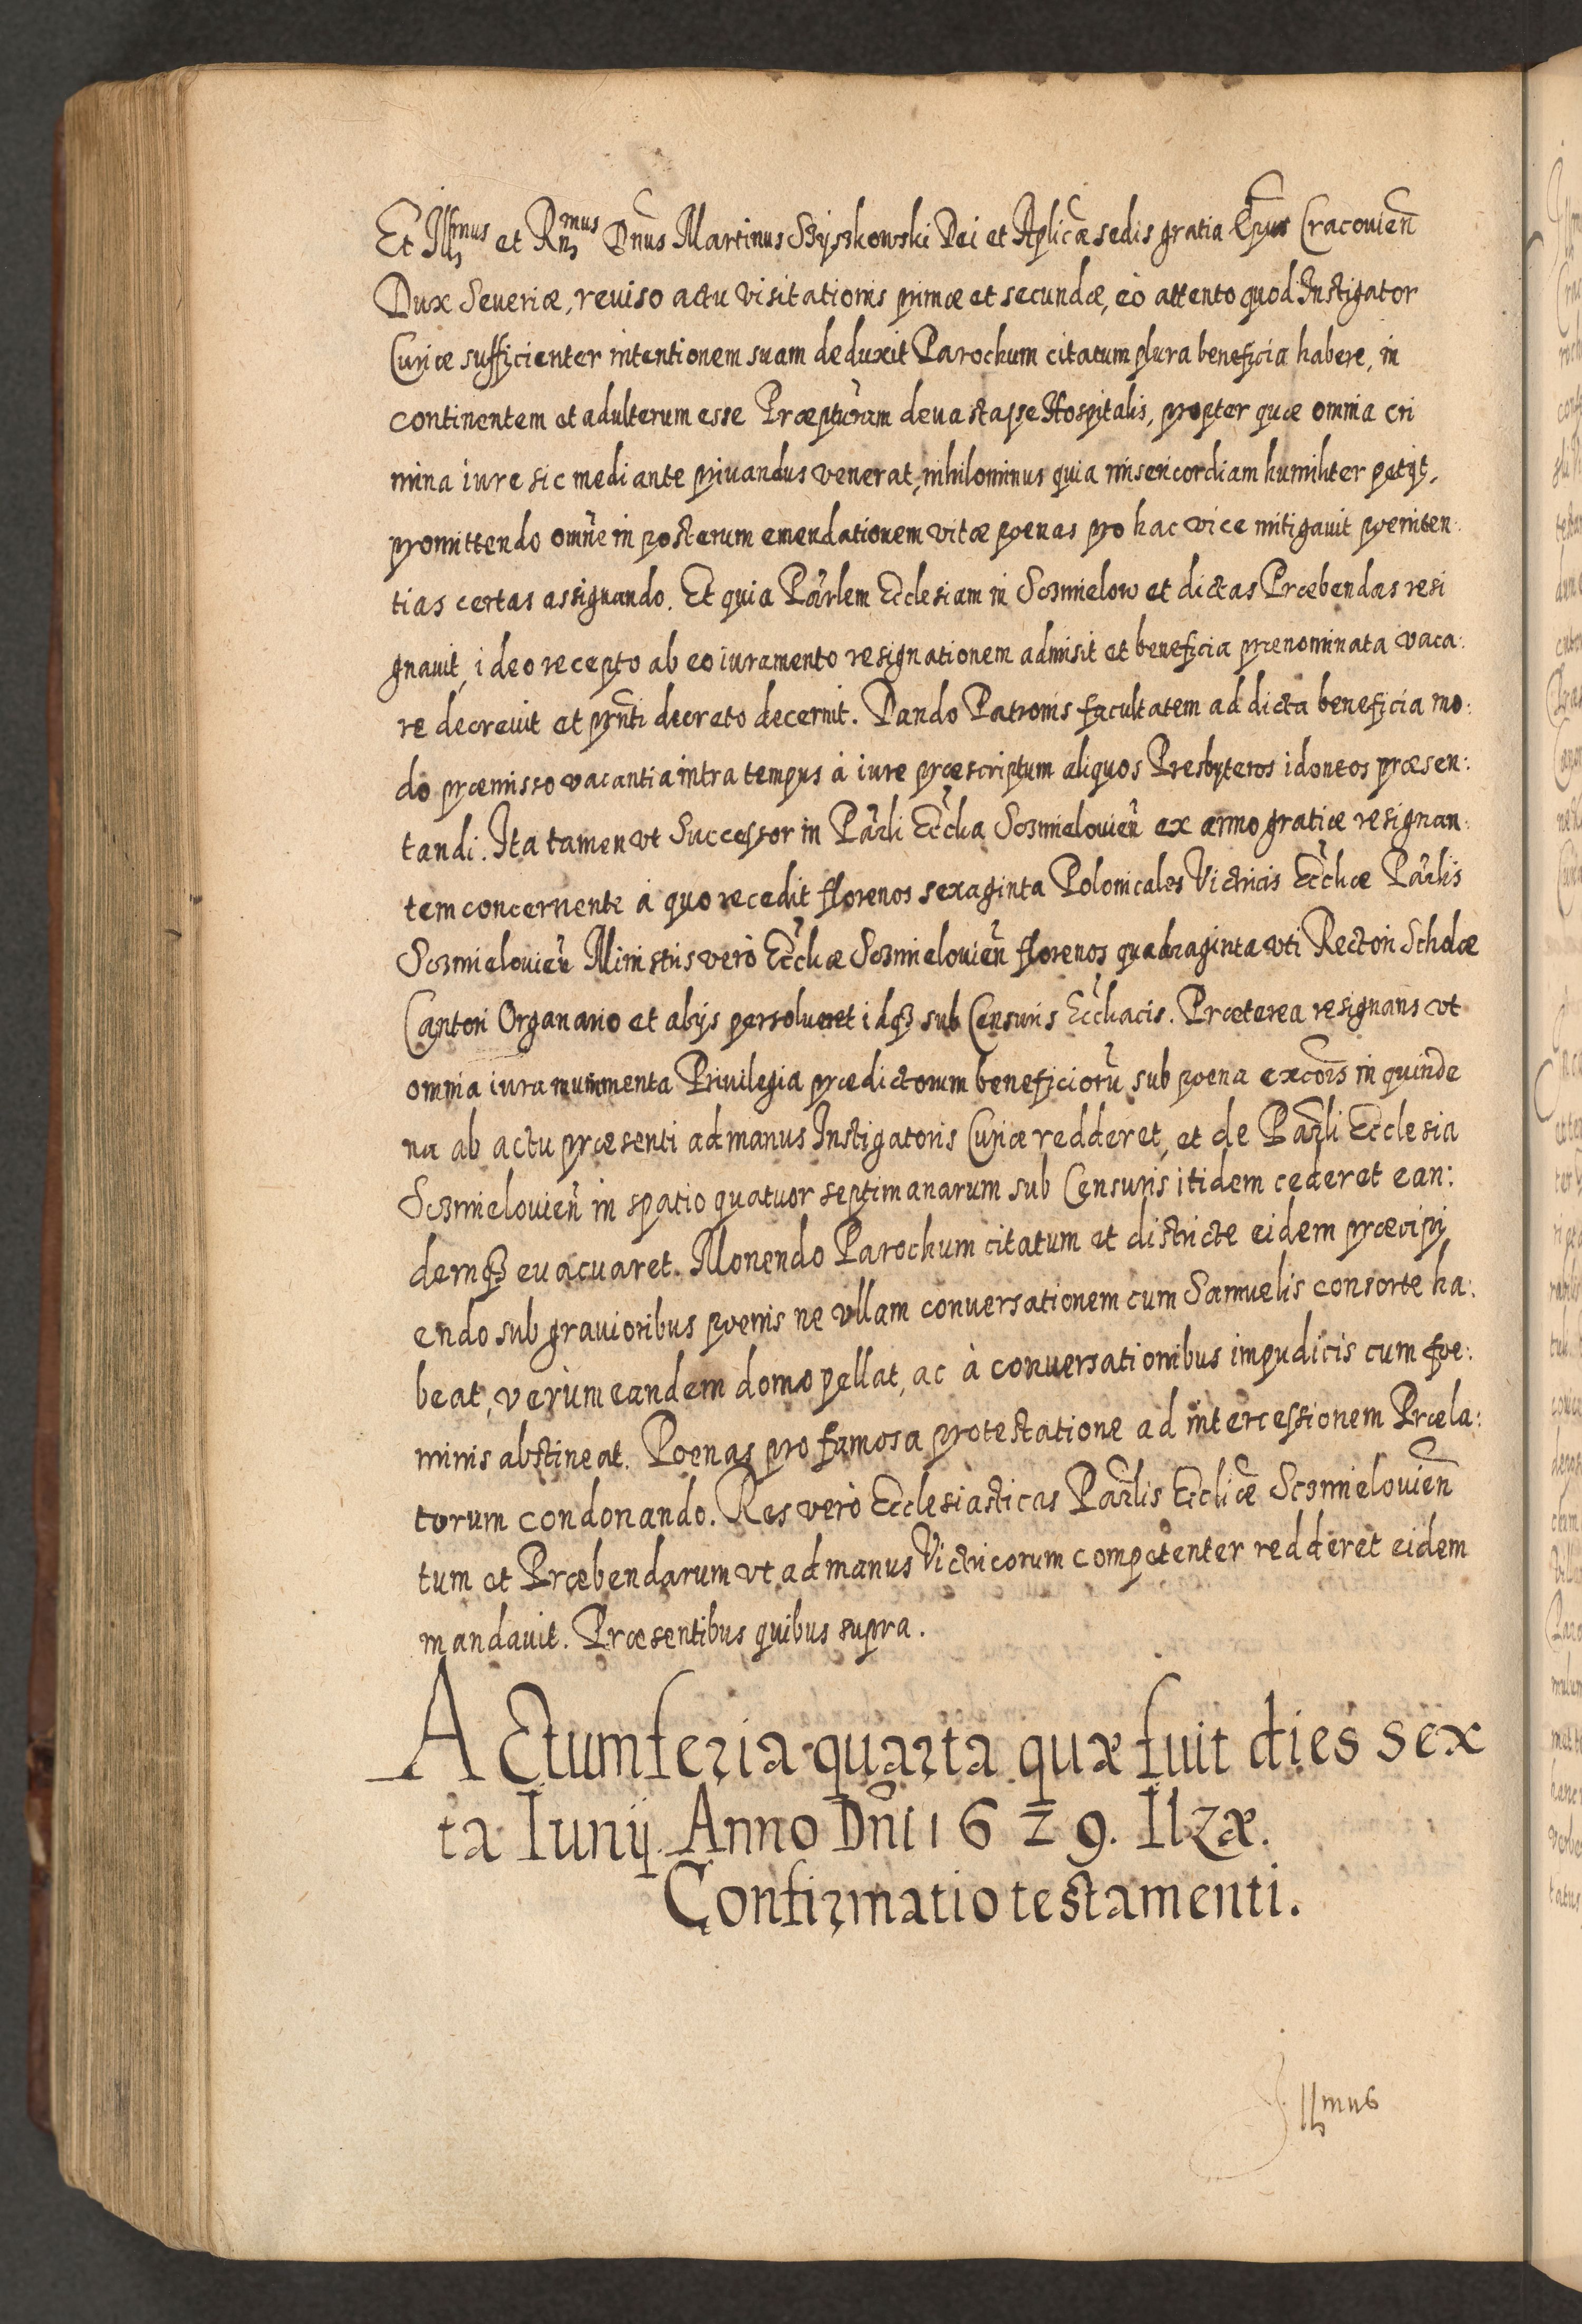 Et Illmus et Rndmus Dnus Martinus Szyszkowski Dei et Aplicæ sedis gratia Epus Cracouien
Dux Seueriæ, reuiso actu visitationis primæ et secundæ, eò attento quod Instigator
Curiæ sufficienter intentionem suam deduxit Parochum citatum plura beneficia habere, in
continentem et adulterum esse Præpturam deuastasse Hospitalis, propter quæ omnia cri
mina iure sic mediante priuandus venerat, nihilominus quia misericordiam humiliter petijt,
promittendo omne in posterum emendationem vitæ poenas pro hac vice mitigauit poeniten:
tias certas assignando. Et quia Parlem Ecclesiam in Sczmielow et dictas Præbendas resi
gnauit, ideo recepto ab eo iuramento resignationem admisit et beneficia prænominata vaca:
re decreuit et prnti decreto decernit. Dando Patronis facultatem ad dicta beneficia mo:
do præmisso vacantia intra tempus à iure præscriptum aliquos Presbyteros idoneos præsen:
tandi. Ita tamen vt Successor in Parli Eccha Sczmielouien ex anno gratiæ resignan:
tem concernente à quo recedit florenos sexaginta Polonicales Victricis Ecchæ Parlis
Sczmielouien Ministris verò Ecchæ Sczmielouien florenos quadraginta vti Rectori Scholæ
Cantori Organario et alijs persolueret idq3 sub Censuris Ecchacis. Præterea resignans vt
omnia iura munimenta Priuilegia prædictorum beneficioru sub poena excois in quinde
na ab actu præsenti ad manus Instigatoris Curiæ redderet, et de Parli Ecclesia
Sczmielouien in spatio quatuor septimanarum sub Censuris itidem cederet ean:
demq3 euacuaret. Monendo Parochum citatum et districte eidem præcipi
endo sub grauioribus poenis ne vllam conuersationem cum Samuelis consorte ha:
beat, verùm eandem domo pellat, ac à conuersationibus impudicis cum foe:
minis abstineat. Poenas pro famosa protestatione ad intercessionem Præla:
torum condonando. Res verò Ecclesiasticas Parlis Ecclicæ Sczmielouien
tum et Præbendarum vt ad manus Victricorum competenter redderet eidem
mandauit. Præsentibus quibus supra.
Actum feria quarta quæ fuit dies sex
ta Iunij. Anno Dni 1629. Ilzæ.
Confirmatio testamenti.
Illmus